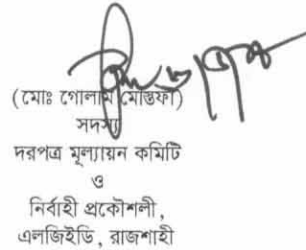 (মোঃ গোলাম মোস্তফা)
সদস্য
দরপত্র মূল্যায়ন কমিটি
ও
নির্বাহী প্রকৌশলী,
এলজিইডি, রাজশাহী